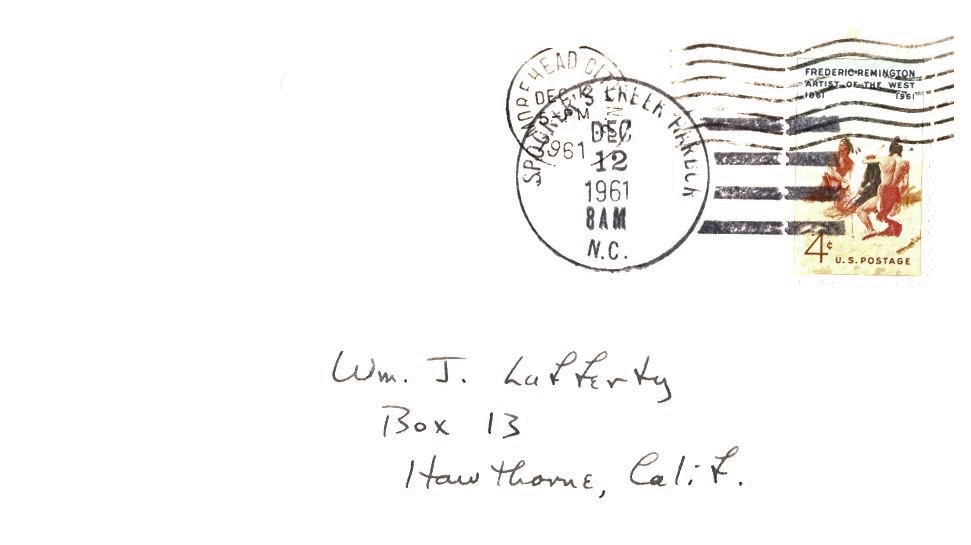 MOREHEAD CITY
DEC 12
PM
1961
SPOONER'S CREEK HARBOR
DEC
12
1961
8 AM
N.C.
FREDERIC REMINGTON
ARTIST OF THE WEST
1861 1961
4¢ U.S. POSTAGE
Wm. J. Lafferty
Box 13
Hawthorne, Calif.